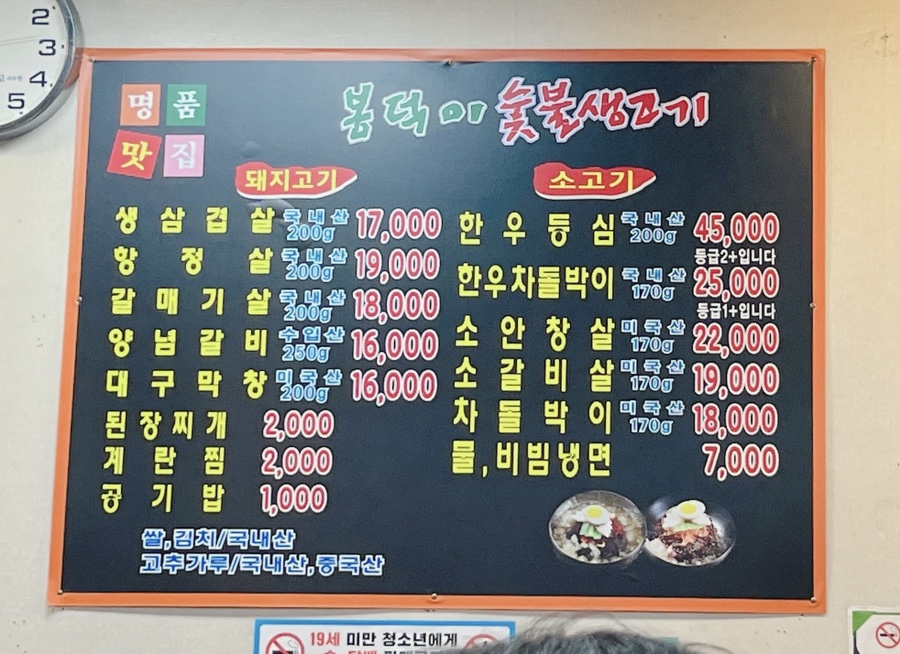 2
3
4
5
명품
맛집
봄덕이 숯불생고기
돼지고기
생삼겹살 국내산 200g 17,000
항정살 국내산 200g 19,000
갈매기살 국내산 200g 18,000
양념갈비 수입산 250g 16,000
대구막창 미국산 200g 16,000
된장찌개 2,000
계란찜 2,000
공기밥 1,000
쌀,김치/국내산
고추가루/국내산,중국산
소고기
한우등심 국내산 200g 45,000
등급2+입니다
한우차돌박이 국내산 170g 25,000
등급1+입니다
소안창살 미국산 170g 22,000
소갈비살 미국산 170g 19,000
차돌박이 미국산 170g 18,000
물,비빔냉면 7,000
19세 미만 청소년에게